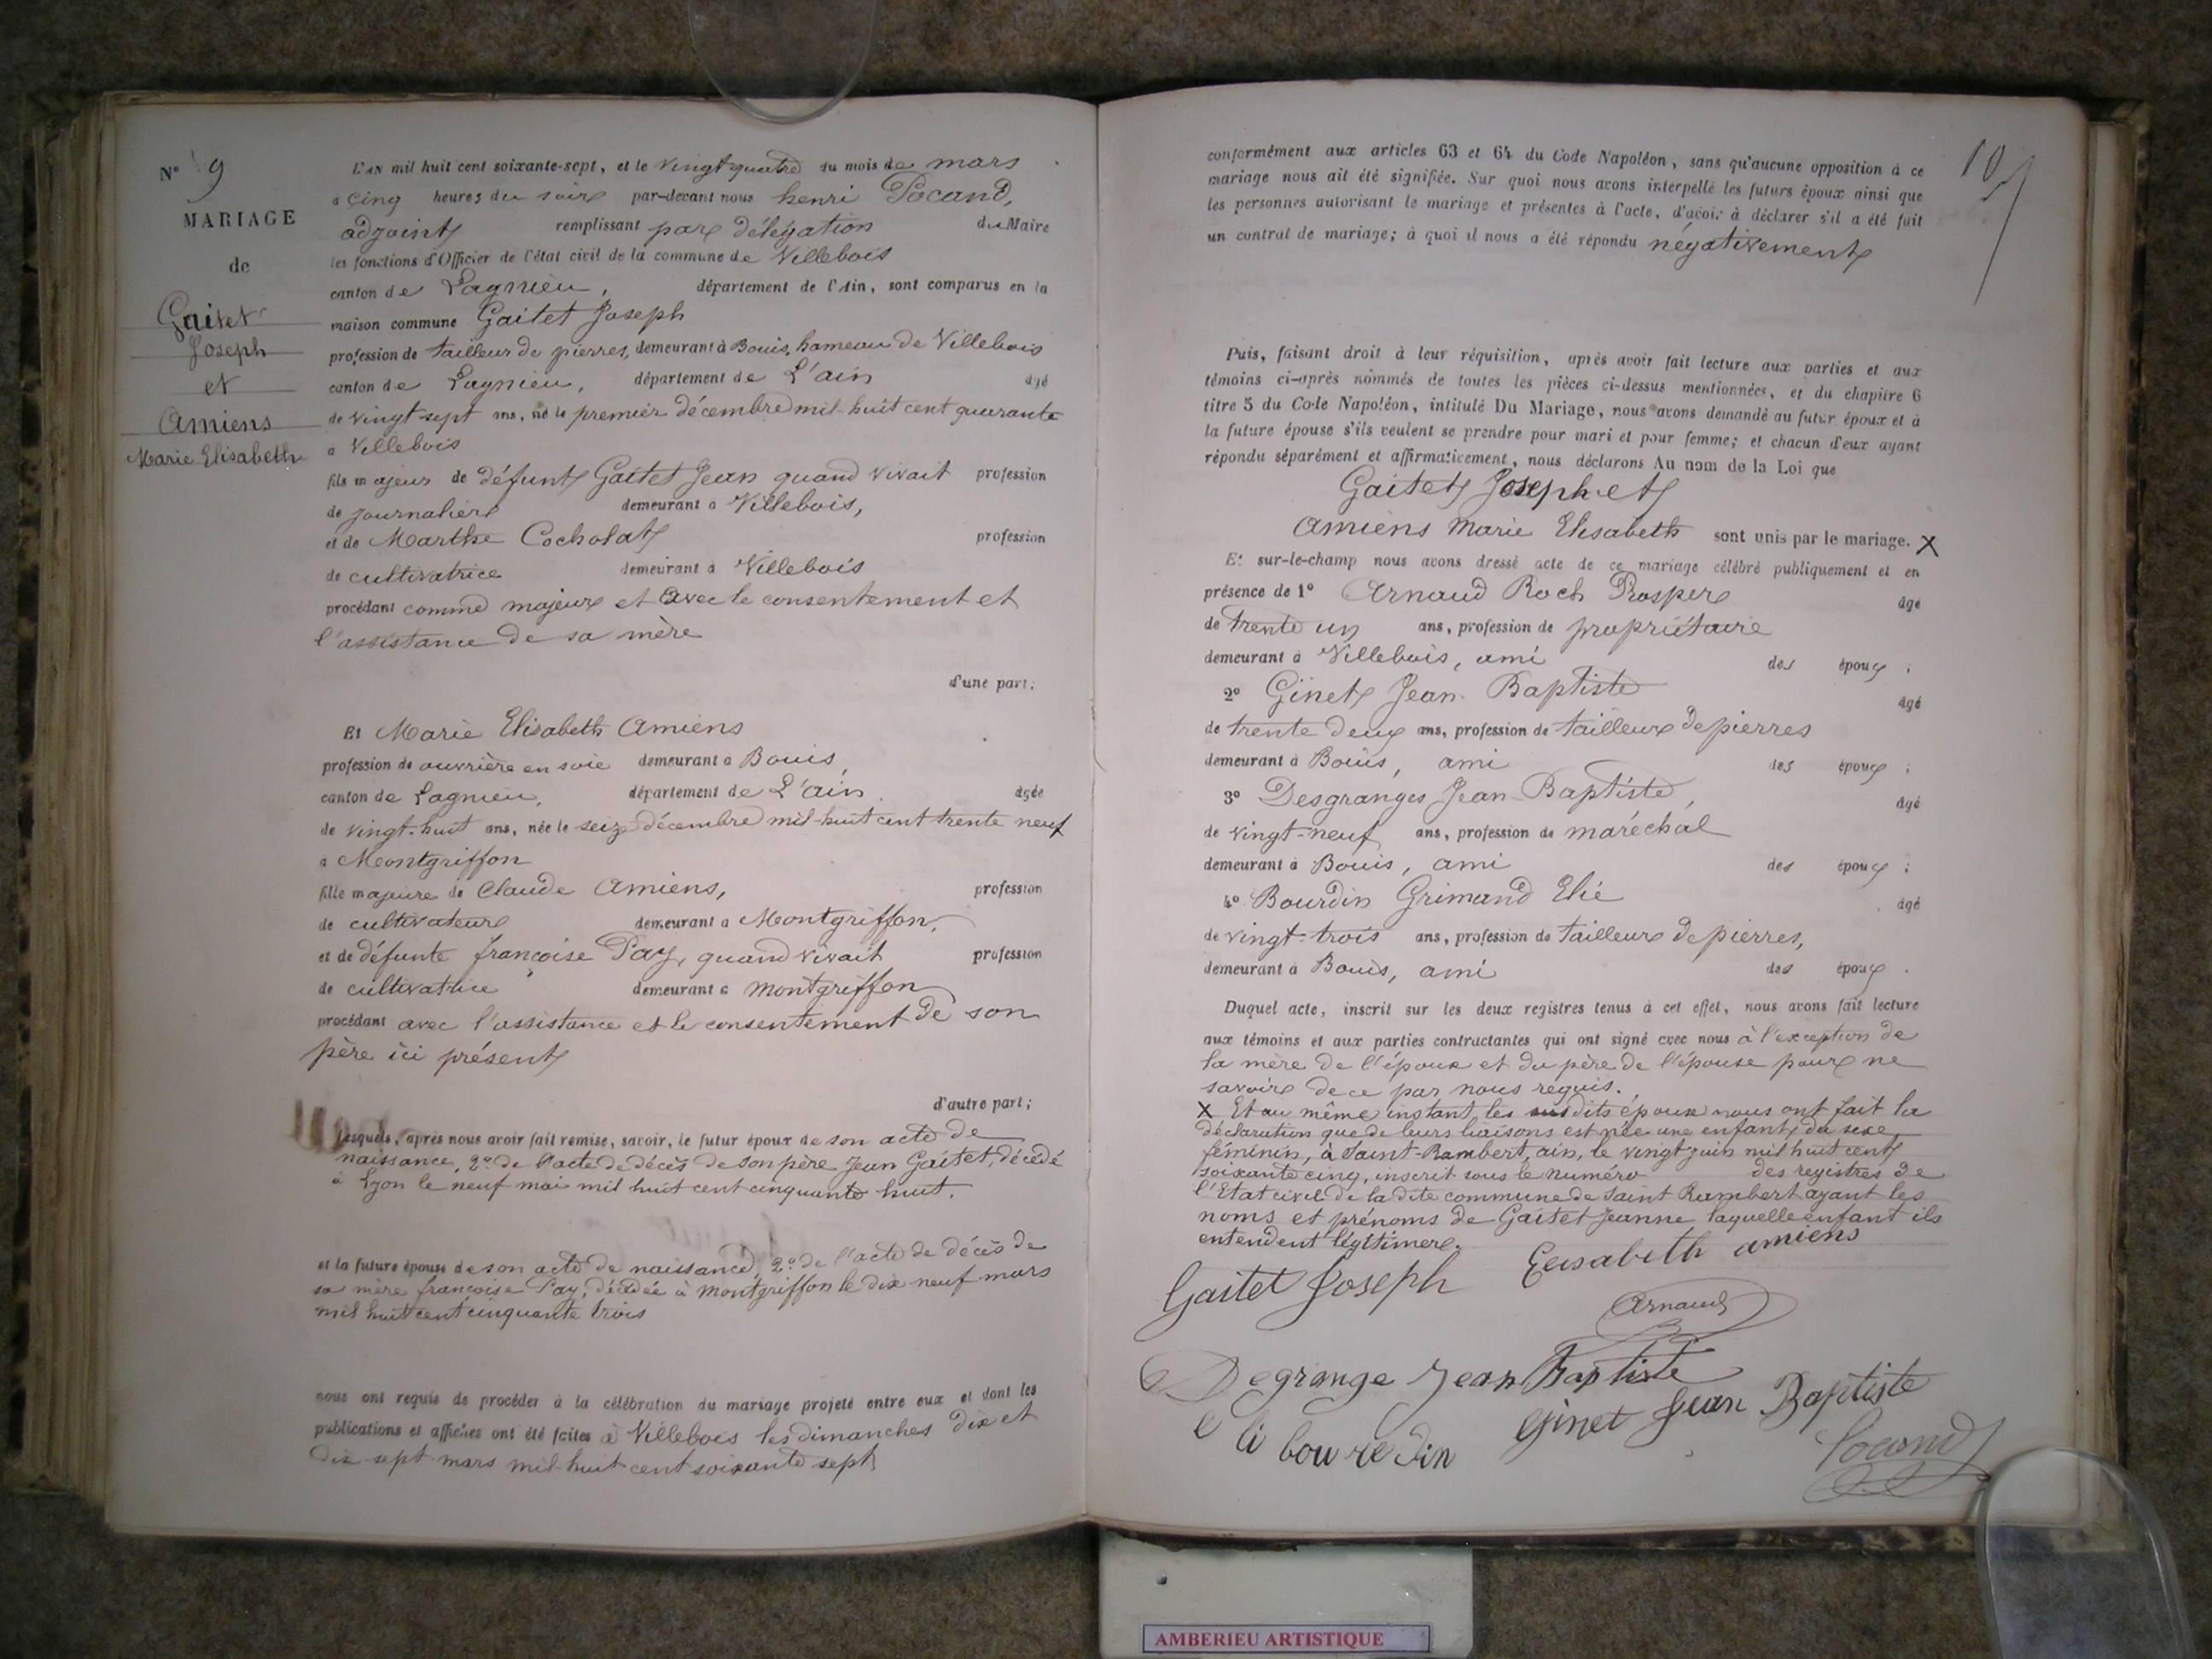 N° 9
MARIAGE
de
Gaitet
Joseph
et
Amiens
Marie Elisabeth
L'AN mil huit cent soixante-sept, et le vingt quatre du mois de mars
a cinq heures du soir par-devant nous henri Pocand,
adjoint remplissant par délégation du Maire
les fonctions d'Officier de l'état civil de la commune de Villebois
canton de Lagnieu, département de l'Ain, sont comparus en la
maison commune Gaitet Joseph
profession de tailleur de pierres, demeurant à Bouis, hameau de Villebois
canton de Lagnieu, département de L'ain âgé
de vingt-sept ans, né le premier décembre mil-huit cent quarante
a Villebois
fils majeur de défunt Gaitet Jean quand vivait profession
de journalier demeurant a Villebois,
et de Marthe Cocholat profession
de cultivatrice demeurant à Villebois
procédant comme majeur et avec le consentement et
l'assistance de sa mère
d'une part;
Et Marie Elisabeth Amiens
profession de ouvrière en soie demeurant à Bouis,
canton de Lagnieu, département de L'ain âgée
de vingt-huit ans, née le seize décembre mil-huit cent trente neuf
a Montgriffon
fille majeure de Claude Amiens, profession
de cultivateur demeurant a Montgriffon,
et de défunte françoise Pay, quand vivait profession
de cultivatrice demeurant a montgriffon
procédant avec l'assistance et le consentement de son
père ici présent
d'autre part;
Lesquels, après nous avoir fait remise, savoir, le futur époux de son acte de
naissance, 2° de l'acte de décès de son père Jean Gaitet, décédé
à Lyon le neuf mai mil huit cent cinquante huit.
et la future épouse de son acte de naissance, 2° de l'acte de décès de
sa mère françoise Pay, décédée à montgriffon le dix neuf mars
mil huit cent cinquante trois
nous ont requis de procéder à la célébration du mariage projeté entre eux et dont les
publications et affiches ont été faites à Villebois les dimanches dix et
dix-sept mars mil-huit cent soixante sept
10
conformément aux articles 63 et 64 du Code Napoléon, sans qu'aucune opposition à ce
mariage nous ait été signifiée. Sur quoi nous avons interpellé les futurs époux ainsi que
les personnes autorisant le mariage et présentes à l'acte, d'avoir à déclarer s'il a été fait
un contrat de mariage; à quoi il nous a été répondu négativement
Puis, faisant droit à leur réquisition, après avoir fait lecture aux parties et aux
témoins ci-après nommés de toutes les pièces ci-dessus mentionnées, et du chapitre 6
titre 5 du Code Napoléon, intitulé Du Mariage, nous avons demandé au futur époux et à
la future épouse s'ils veulent se prendre pour mari et pour femme; et chacun d'eux ayant
répondu séparément et affirmativement, nous déclarons Au nom de la Loi que
Gaitet Joseph et
Amiens Marie Elisabeth sont unis par le mariage. X
Et sur-le-champ nous avons dressé acte de ce mariage célébré publiquement et en
présence de 1° Arnaud Roch Prosper âgé
de trente un ans, profession de propriétaire
demeurant à Villebois, ami des époux ;
2° Ginet Jean-Baptiste âgé
de trente deux ans, profession de tailleur de pierres
demeurant à Bouis, ami des époux ;
3° Desgranges Jean-Baptiste, âgé
de vingt-neuf ans, profession de maréchal
demeurant à Bouis, ami des époux ;
4° Bourdin Grimand Elie âgé
de vingt-trois ans, profession de tailleur de pierres,
demeurant à Bouis, ami des époux .
Duquel acte, inscrit sur les deux registres tenus à cet effet, nous avons fait lecture
aux témoins et aux parties contractantes qui ont signé avec nous à l'exception de
la mère de l'époux et du père de l'épouse pour ne
savoir de ce par nous requis.
X Et au même instant les susdits époux nous ont fait la
déclaration que de leurs liaisons est née une enfant du sexe
féminin, à Saint-Rambert, ain, le vingt juin mil huit cent
soixante cinq, inscrit sous le numéro des registres de
l'Etat civil de la dite commune de Saint Rambert ayant les
noms et prénoms de Gaitet Jeanne laquelle enfant ils
entendent légitimer.
Gaitet Joseph Eeisabeth amiens
Arnaud
Degrange Jean Baptiste
e li bou re din Ginet Jean Baptiste
Pocand
AMBERIEU ARTISTIQUE